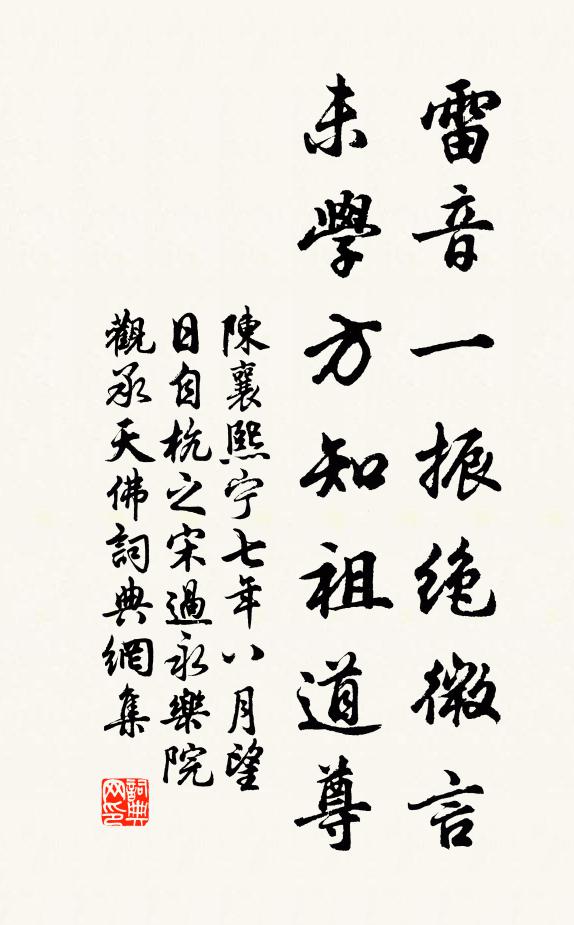 雷音一振絶微言
未學方知祖道尊
陳襄熙宁七年八月望
日自杭之宋過永樂院
觀承天佛詞典網集
詞典网印